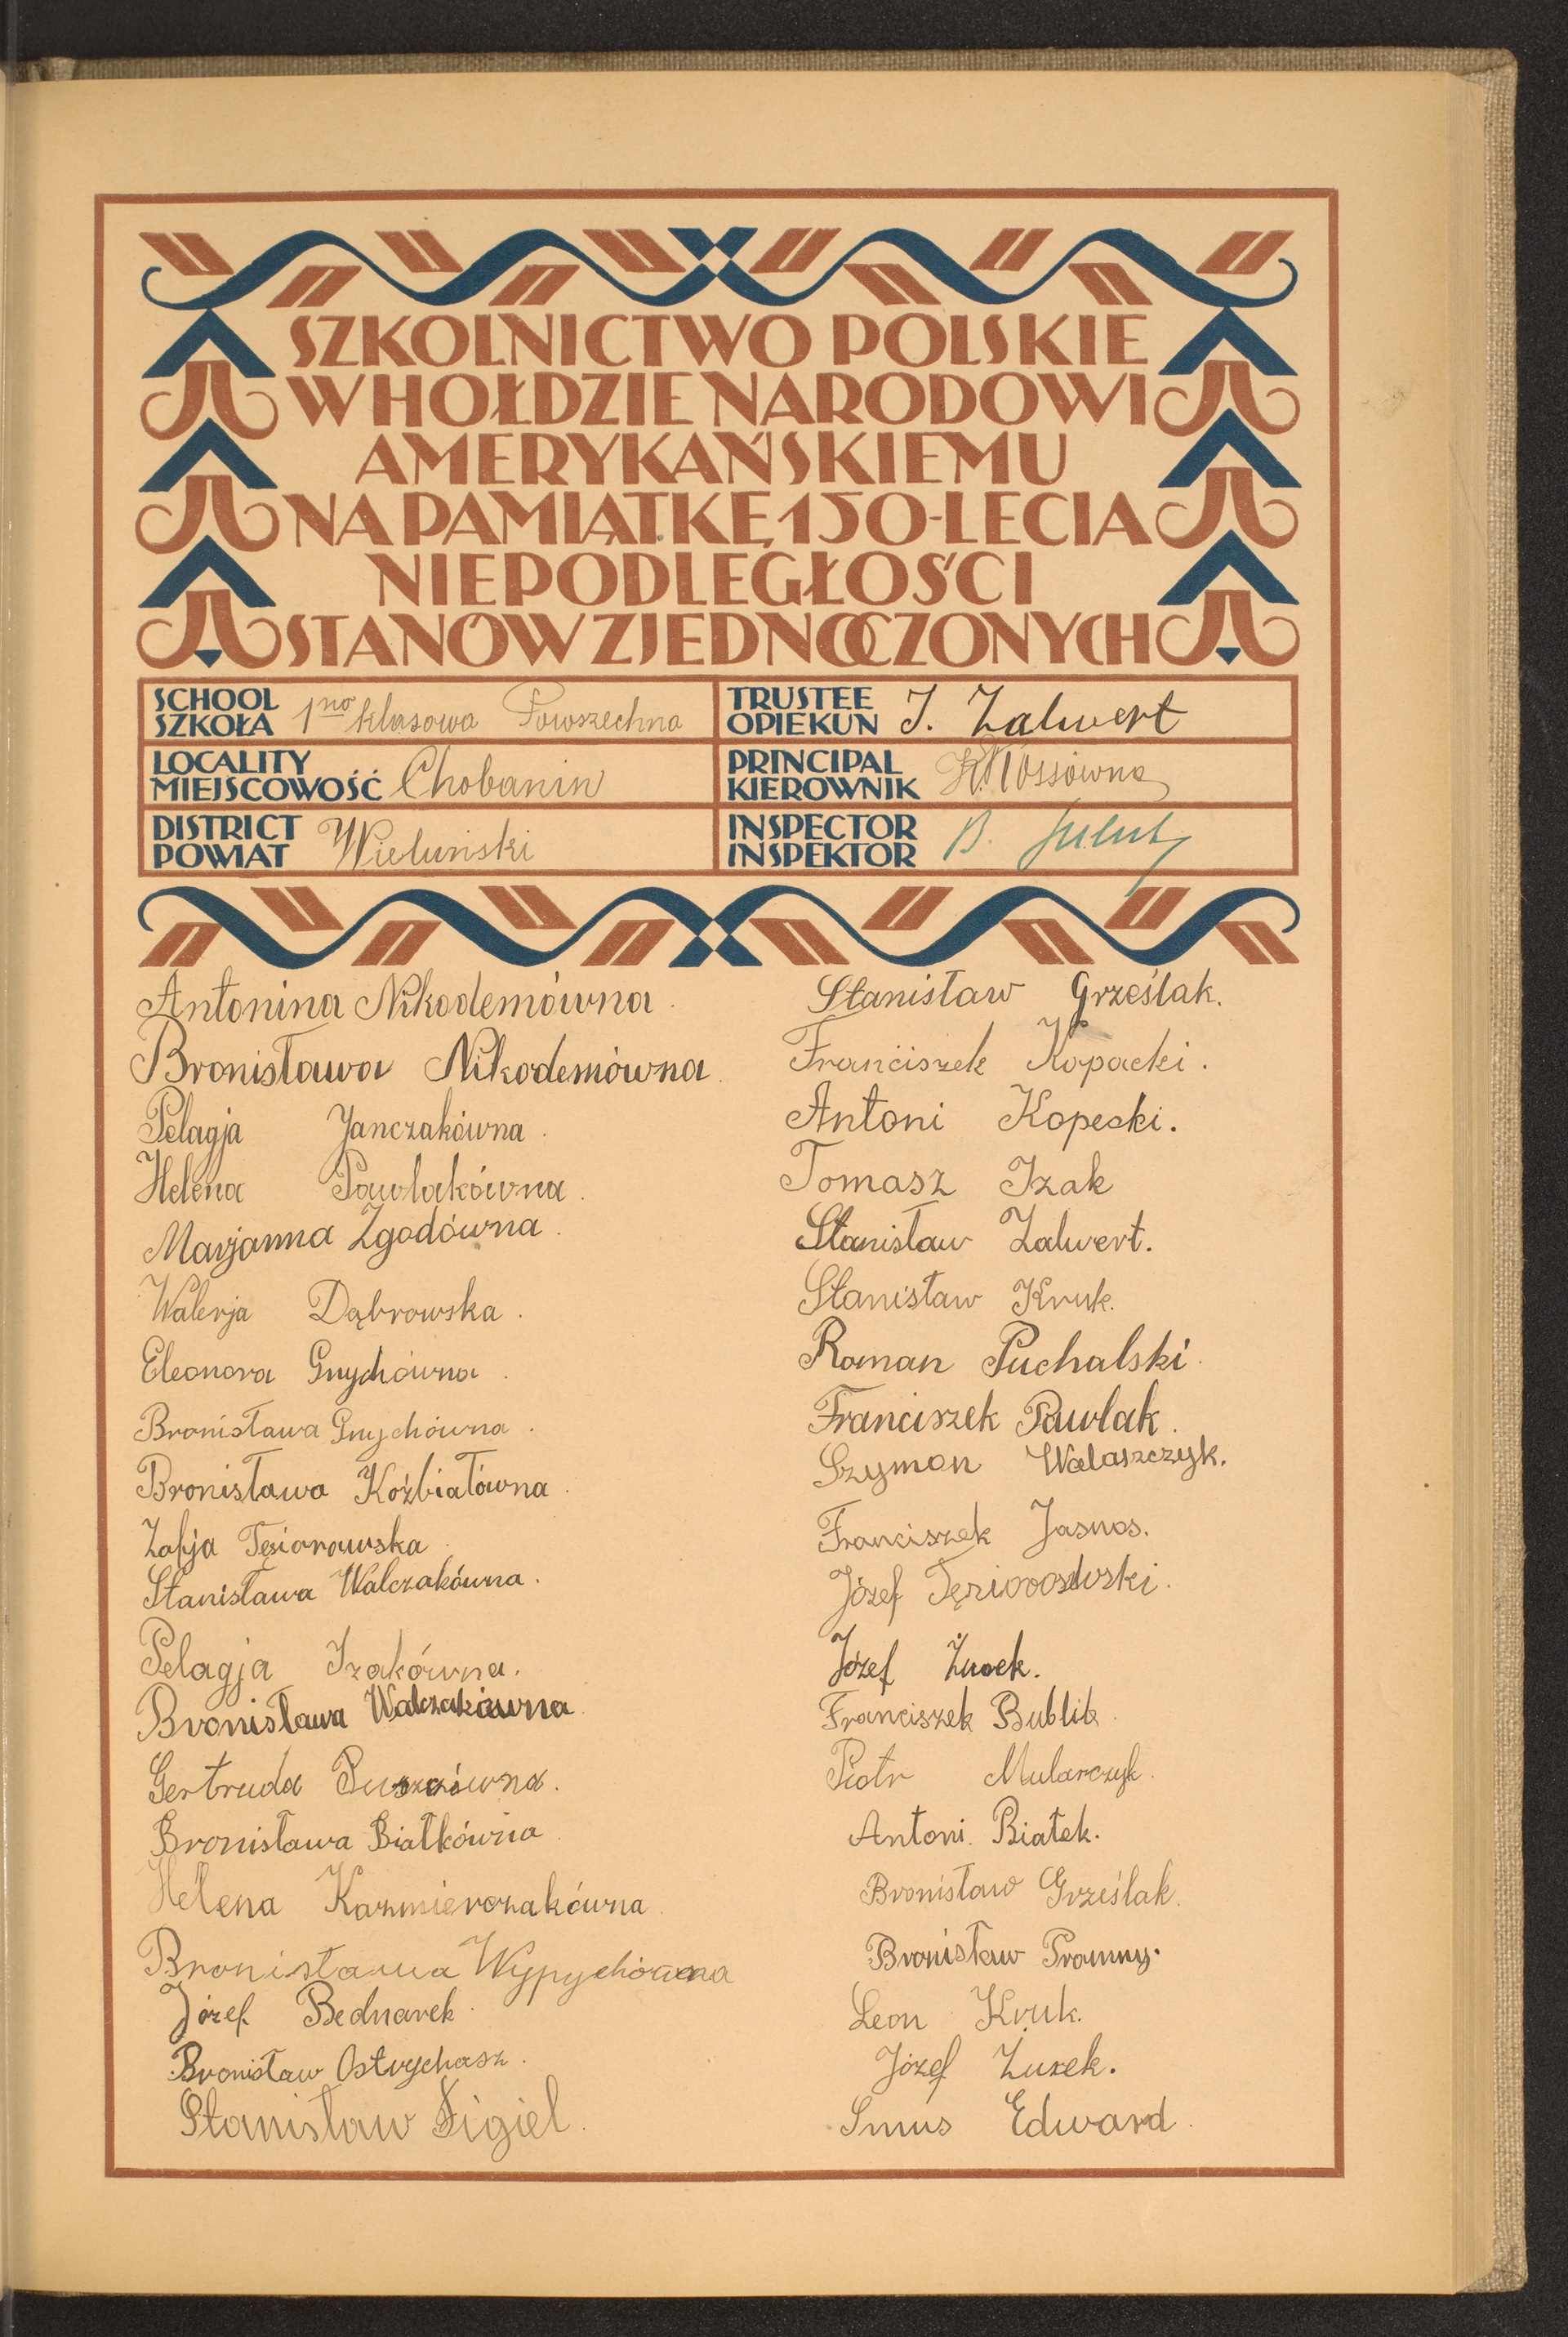 SZKOLNICTWO POLSKIE
W HOŁDZIE NARODOWI
AMERYKAŃSKIEMU
NA PAMIĄTKĘ 150-LECIA
NIEPODLEGŁOŚCI
STANÓW ZJEDNOCZONYCH
SCHOOL
SZKOŁA 1no klasowa Powszechna
TRUSTEE
OPIEKUN J. Zalwert
LOCALITY
MIEJSCOWOŚĆ Chobanin
PRINCIPAL
KIEROWNIK
DISTRICT
POWIAT Wieluński
INSPECTOR
INSPEKTOR B.
Antonina Nikodemówna.
Bronisława Nikodemówna.
Pelagja Janczakówna.
Helena Pawlakówna.
Marjanna Zgodówna.
Walerja Dąbrowska.
Eleonora Gnychówna.
Bronisława Gnychówna.
Bronisława Koźbiałówna.
Zofja Tęsiorowska.
Stanisława Walczakówna.
Pelagja Izakówna.
Bronisława Walczakówna
Gertruda
Bronisława Białkówna
Helena Kazmierczakówna.
Bronisława Wypychówna
Józef Bednarek.
Bronisław Ostrychasz.
Stanisław Figiel.
Stanisław Grześlak.
Franciszek Kopacki.
Antoni Kopecki.
Tomasz Izak
Stanisław Zalwert.
Stanisław Kruk.
Roman Puchalski.
Franciszek Pawlak.
Szymon Walaszczyk.
Franciszek Jasnos.
Józef
Józef Żurek.
Franciszek Bublik.
Piotr Mularczyk.
Antoni Białek.
Bronisław Grześlak.
Bronisław
Leon Kruk.
Józef Żurek.
Smus Edward.